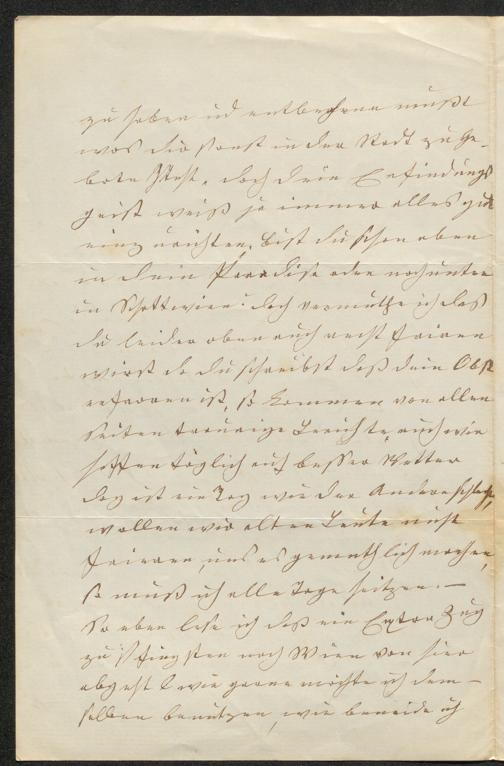 zu haben und entbehren mußt
was dir sonst in der Stadt zu Ge-
bote steht, doch dein Erfindungs
geist weiß ja immer alles gut
einzurichten. Bist du schon oben
in dein Paradise oder noch unten
in Schottwien? doch vermuthe ich das
du leider oben auch recht frieren
wirst da du schreibst daß dein Obst
erfroren ist, so kommen von allen
Seiten traurige Berichte, auch wir
hoffen täglich auf besser Wetter
doch ist ein Tag wie der Andere schlecht,
wollen wir alten Leute nicht
frieren, uns es gemüthlich machen,
so muß ich alle Tage heitzen. —
So eben lese ich daß ein Extra Zug
zu Pfingsten nach Wien von hier
abgeht wie gerne möchte ich dem-
selben benützen, wie beneide ich